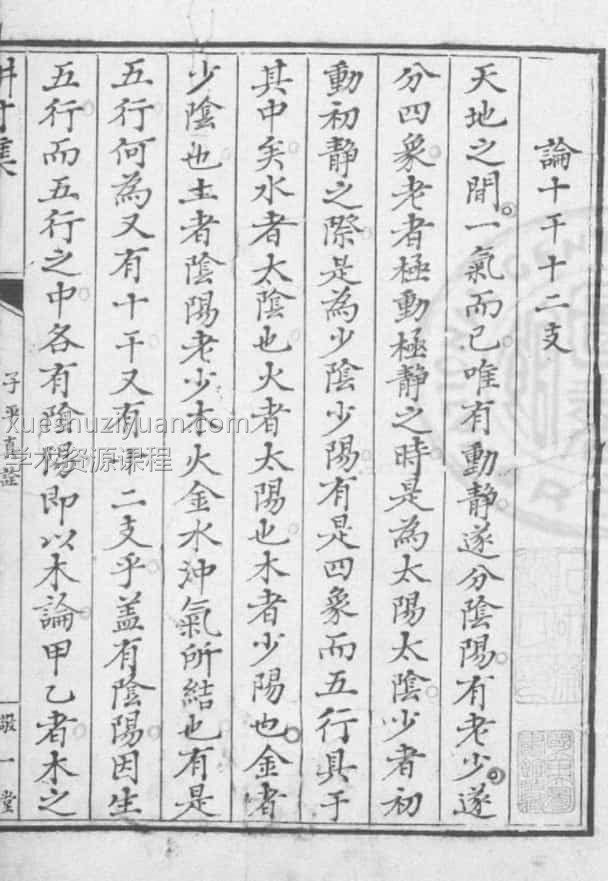 論十干十二支
天地之間一氣而已唯有動静遂分陰陽有老少遂
分四象老者極動極静之時是為太陽太陰少者初
動初静之際是為少陰少陽有是四象而五行具于
其中矣水者太陰也火者太陽也木者少陽也金者
少陰也土者陰陽老少木火金水沖氣所結也有是
五行何為又有十干又有十二支乎盖有陰陽因生
五行而五行之中各有陰陽即以木論甲乙者木之
子平真詮
敬一堂
xueshuziyuan.com
学术资源课程